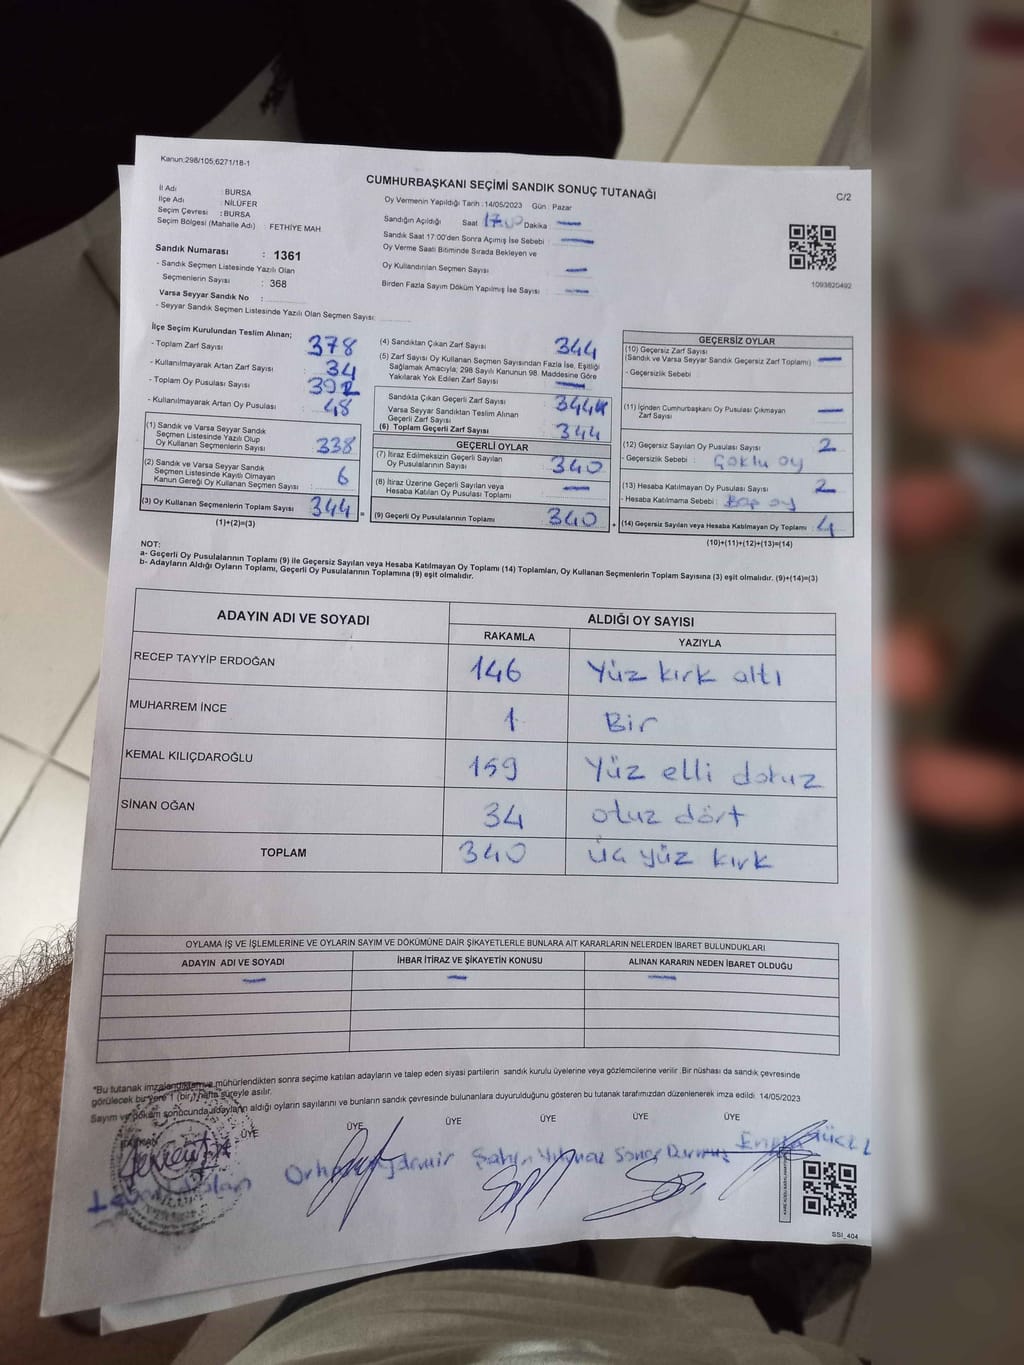 Kanun;298/105;6271/18-1
CUMHURBAŞKANI SEÇİMİ SANDIK SONUÇ TUTANAĞI
C/2
İl Adı : BURSA
İlçe Adı : NİLÜFER
Seçim Çevresi : BURSA
Seçim Bölgesi (Mahalle Adı) FETHİYE MAH.
Sandık Numarası : 1361
- Sandık Seçmen Listesinde Yazılı Olan
Seçmenlerin Sayısı : 368
Varsa Seyyar Sandık No :
- Seyyar Sandık Seçmen Listesinde Yazılı Olan Seçmen Sayısı:
Oy Vermenin Yapıldığı Tarih :14/05/2023 Gün : Pazar
Sandığın Açıldığı Saat 17:00 Dakika —
Sandık Saat 17:00'den Sonra Açımış İse Sebebi : —
Oy Verme Saati Bitiminde Sırada Bekleyen ve
Oy Kullandırılan Seçmen Sayısı : —
Birden Fazla Sayım Döküm Yapılmış İse Sayısı : —
1093820492
İlçe Seçim Kurulundan Teslim Alınan;
- Toplam Zarf Sayısı : 378
- Kullanılmayarak Artan Zarf Sayısı : 34
- Toplam Oy Pusulası Sayısı : 392
- Kullanılmayarak Artan Oy Pusulası : 48
(1) Sandık ve Varsa Seyyar Sandık
Seçmen Listesinde Yazılı Olup
Oy Kullanan Seçmenlerin Sayısı : 338
(2) Sandık ve Varsa Seyyar Sandık
Seçmen Listesinde Kayıtlı Olmayan
Kanun Gereği Oy Kullanan Seçmen Sayısı : 6
(3) Oy Kullanan Seçmenlerin Toplam Sayısı : 344
(1)+(2)=(3)
(4) Sandıktan Çıkan Zarf Sayısı : 344
(5) Zarf Sayısı Oy Kullanan Seçmen Sayısından Fazla İse, Eşitliği
Sağlamak Amacıyla; 298 Sayılı Kanunun 98. Maddesine Göre
Yakılarak Yok Edilen Zarf Sayısı : —
Sandıkta Çıkan Geçerli Zarf Sayısı : 344
Varsa Seyyar Sandıktan Teslim Alınan
Geçerli Zarf Sayısı :
(6) Toplam Geçerli Zarf Sayısı : 344
GEÇERLİ OYLAR
(7) İtiraz Edilmeksizin Geçerli Sayılan
Oy Pusulalarının Sayısı : 340
(8) İtiraz Üzerine Geçerli Sayılan veya
Hesaba Katılan Oy Pusulası Toplamı : —
= (9) Geçerli Oy Pusulalarının Toplamı : 340
GEÇERSİZ OYLAR
(10) Geçersiz Zarf Sayısı
(Sandık ve Varsa Seyyar Sandık Geçersiz Zarf Toplamı) : —
- Geçersizlik Sebebi :
(11) İçinden Cumhurbaşkanı Oy Pusulası Çıkmayan
Zarf Sayısı : —
(12) Geçersiz Sayılan Oy Pusulası Sayısı : 2
- Geçersizlik Sebebi : Çoklu oy
(13) Hesaba Katılmayan Oy Pusulası Sayısı : 2
- Hesaba Katılmama Sebebi : Boş oy
+ (14) Geçersiz Sayılan veya Hesaba Katılmayan Oy Toplamı : 4
(10)+(11)+(12)+(13)=(14)
NOT:
a- Geçerli Oy Pusulalarının Toplamı (9) ile Geçersiz Sayılan veya Hesaba Katılmayan Oy Toplamı (14) Toplamları, Oy Kullanan Seçmenlerin Toplam Sayısına (3) eşit olmalıdır. (9)+(14)=(3)
b- Adayların Aldığı Oyların Toplamı, Geçerli Oy Pusulalarının Toplamına (9) eşit olmalıdır.
ADAYIN ADI VE SOYADI ALDIĞI OY SAYISI
RAKAMLA YAZIYLA
RECEP TAYYİP ERDOĞAN 146 Yüz kırk altı
MUHARREM İNCE 1 Bir
KEMAL KILIÇDAROĞLU 159 Yüz elli dokuz
SİNAN OĞAN 34 otuz dört
TOPLAM 340 üç yüz kırk
OYLAMA İŞ VE İŞLEMLERİNE VE OYLARIN SAYIM VE DÖKÜMÜNE DAİR ŞİKAYETLERLE BUNLARA AİT KARARLARIN NELERDEN İBARET BULUNDUKLARI
ADAYIN ADI VE SOYADI İHBAR İTİRAZ VE ŞİKAYETİN KONUSU ALINAN KARARIN NEDEN İBARET OLDUĞU
— — —
*Bu tutanak imzalandıktan ve mühürlendikten sonra seçime katılan adayların ve talep eden siyasi partilerin sandık kurulu üyelerine veya gözlemcilerine verilir. Bir nüshası da sandık çevresinde
görülecek bir yere 1 (bir) hafta süreyle asılır.
Sayım ve döküm sonucunda adayların aldığı oyların sayılarını ve bunların sandık çevresinde bulunanlara duyurulduğunu gösteren bu tutanak tarafımızdan düzenlenerek imza edildi. 14/05/2023
ÜYE ÜYE ÜYE ÜYE ÜYE ÜYE
Soner Durmuş
SSI_404